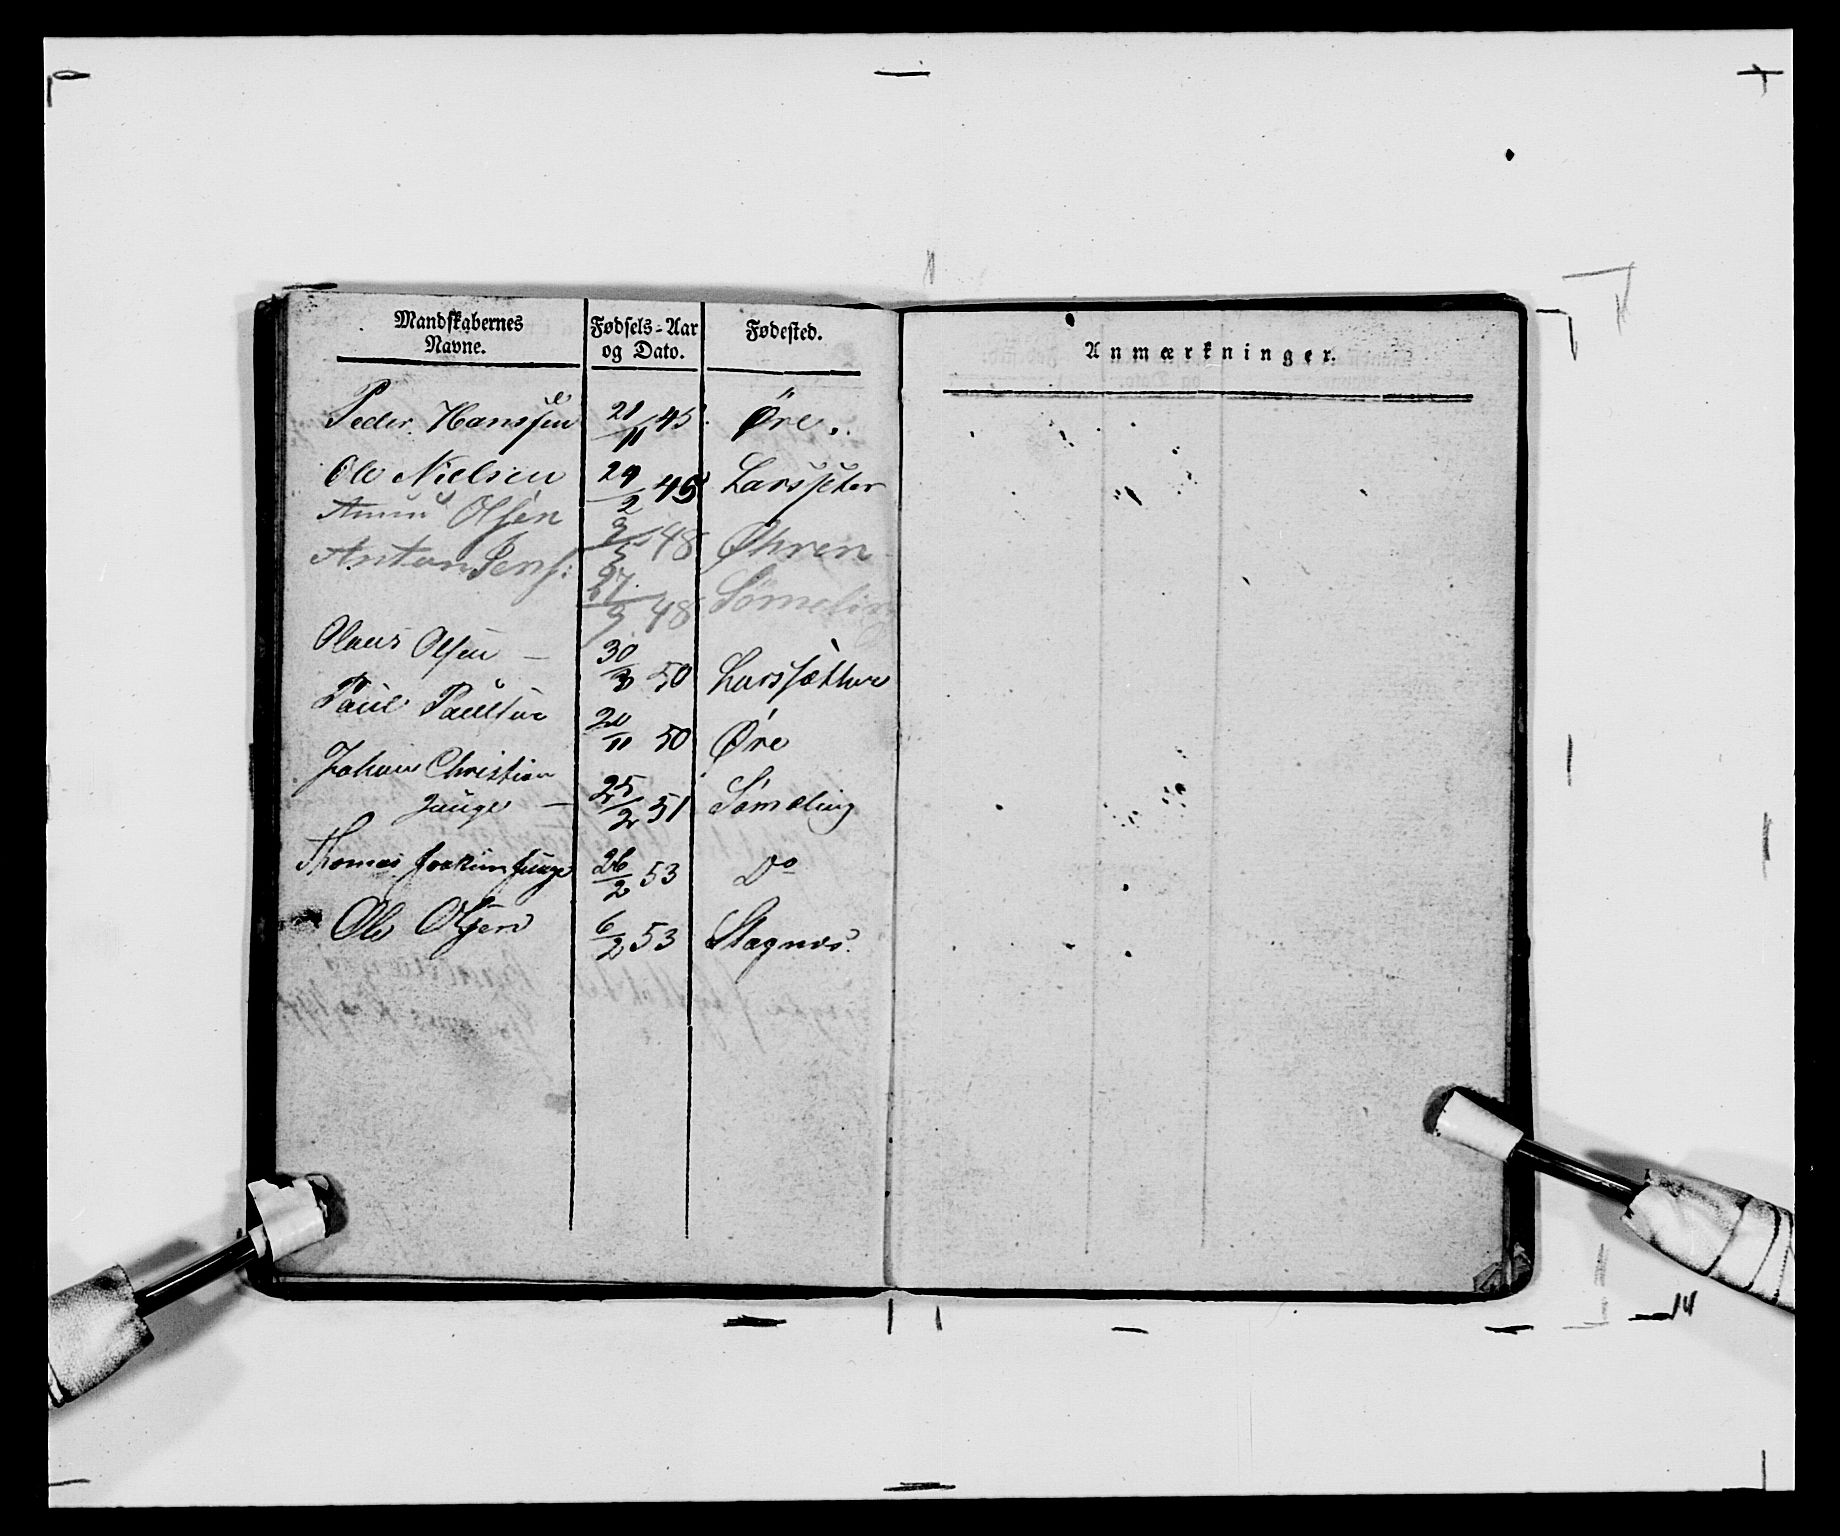 Mandskabernes Navne.
Fødsels-Aar og Dato.
Fødested.
Anmærkninger.
Peder Hanssen 21/11 45 Øre.
Ole Nielsen 29/2 45 Larssæter
Olsen 9/5 48 Øhren
Anton Jens: 27/9 48 Sømeling
Olaus Olsen — 30/3 50 Larssætter
Paul Paulsen 20/11 50 Øre
Johan Christian
Junge — 25/2 51 Sømeling
Thomas Joakim Junge 26/2 53 Do
Ole Olsen 6/2 53 Stagnæs.
14